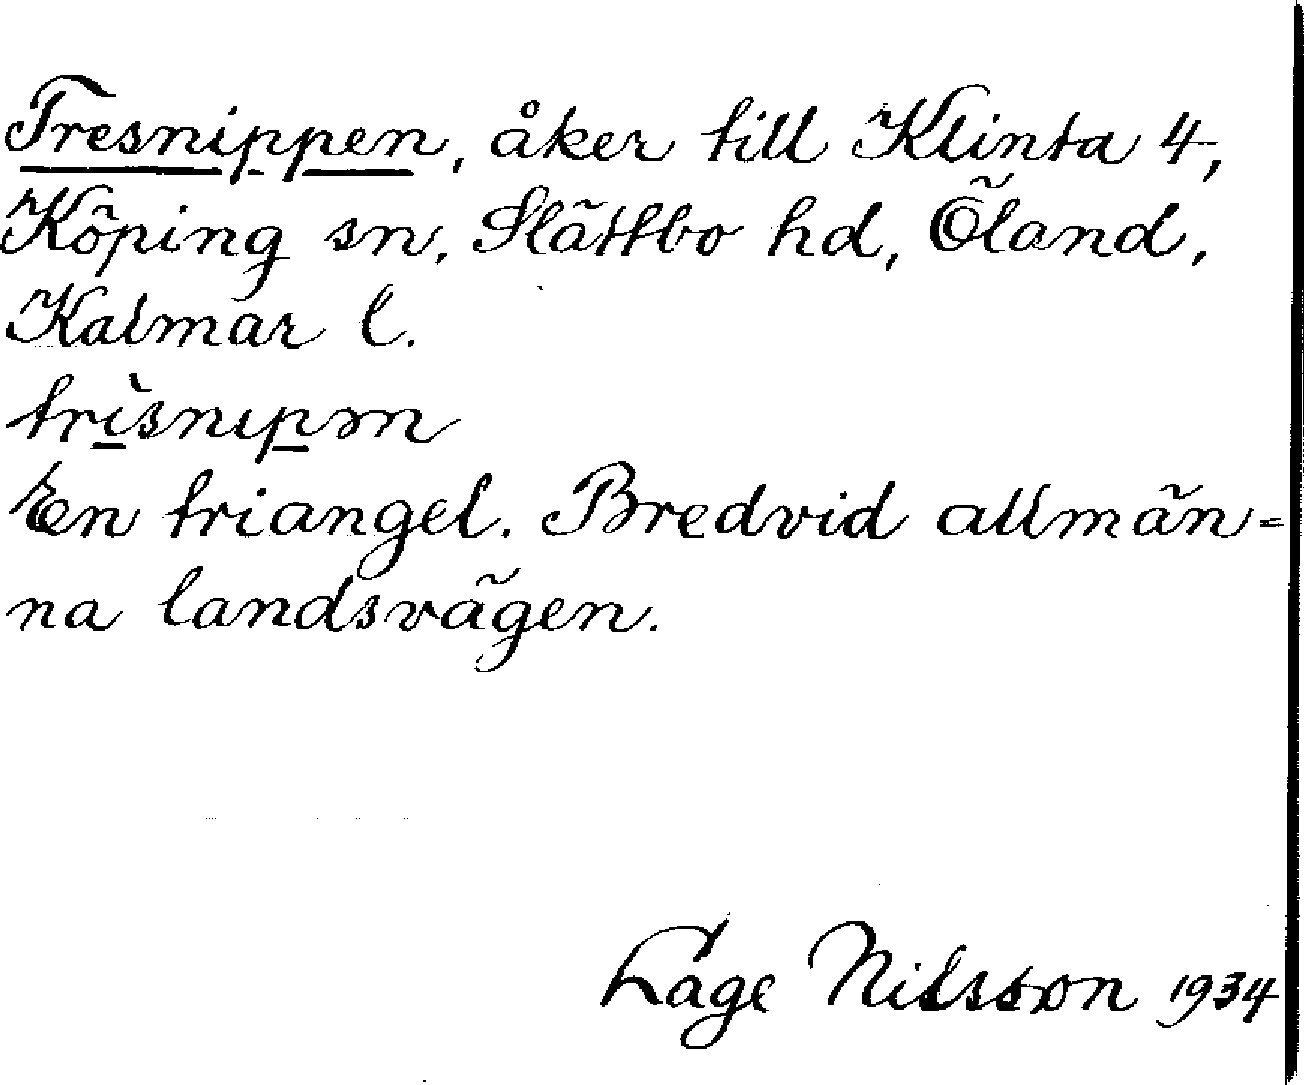 Tresnippen, åker till Klinta 4,
Köping sn, Slättbo hd, Öland,
Kalmar l.
trìsnıpm
En triangel. Bredvid allmän-
na landsvägen.
Låge Nilsson 1934